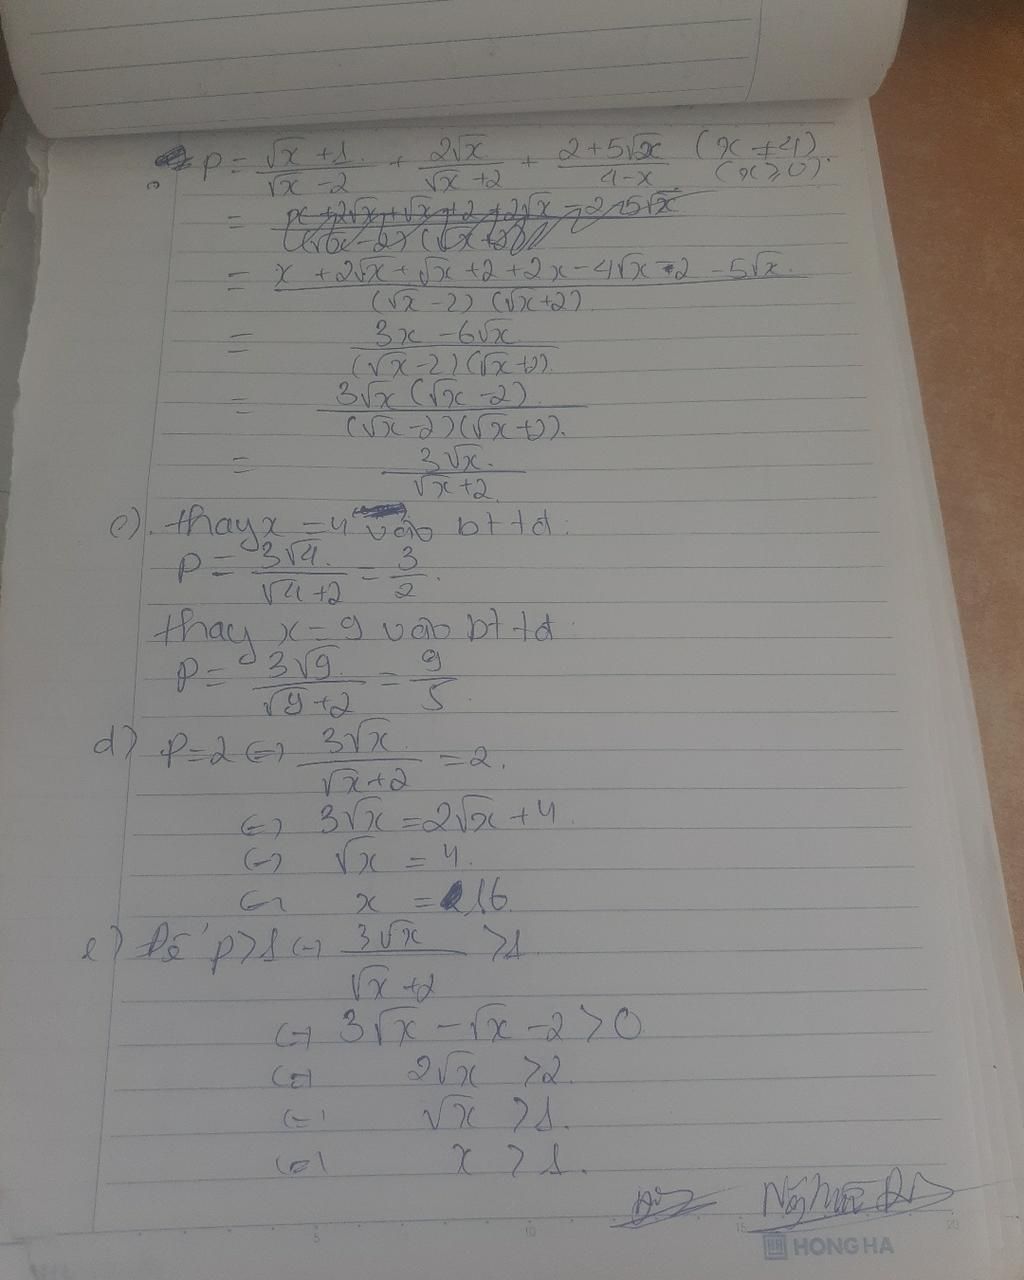 P = \frac{\sqrt{x}+1}{\sqrt{x}-2} + \frac{2\sqrt{x}}{\sqrt{x}+2} + \frac{2+5\sqrt{x}}{4-x} (x ≠ 4) (x ≥ 0)
= \frac{x+2\sqrt{x}+\sqrt{x}+2+2x-4\sqrt{x}-2-5\sqrt{x}}{(\sqrt{x}-2)(\sqrt{x}+2)}
= \frac{3x-6\sqrt{x}}{(\sqrt{x}-2)(\sqrt{x}+2)}
= \frac{3\sqrt{x}(\sqrt{x}-2)}{(\sqrt{x}-2)(\sqrt{x}+2)}
= \frac{3\sqrt{x}}{\sqrt{x}+2}
c) thay x = 4 vào bt tđ:
P = \frac{3\sqrt{4}}{\sqrt{4}+2} = \frac{3}{2}.
thay x = 9 vào bt tđ:
P = \frac{3\sqrt{9}}{\sqrt{9}+2} = \frac{9}{5}.
d) P = 2 <=> \frac{3\sqrt{x}}{\sqrt{x}+2} = 2.
<=> 3\sqrt{x} = 2\sqrt{x}+4
<=> \sqrt{x} = 4.
<=> x = 16
e) Để P > 1 <=> \frac{3\sqrt{x}}{\sqrt{x}+2} > 1
<=> 3\sqrt{x} - \sqrt{x} - 2 > 0
<=> 2\sqrt{x} > 2.
<=> \sqrt{x} > 1.
<=> x > 1.
5 10 15 20
HONG HA